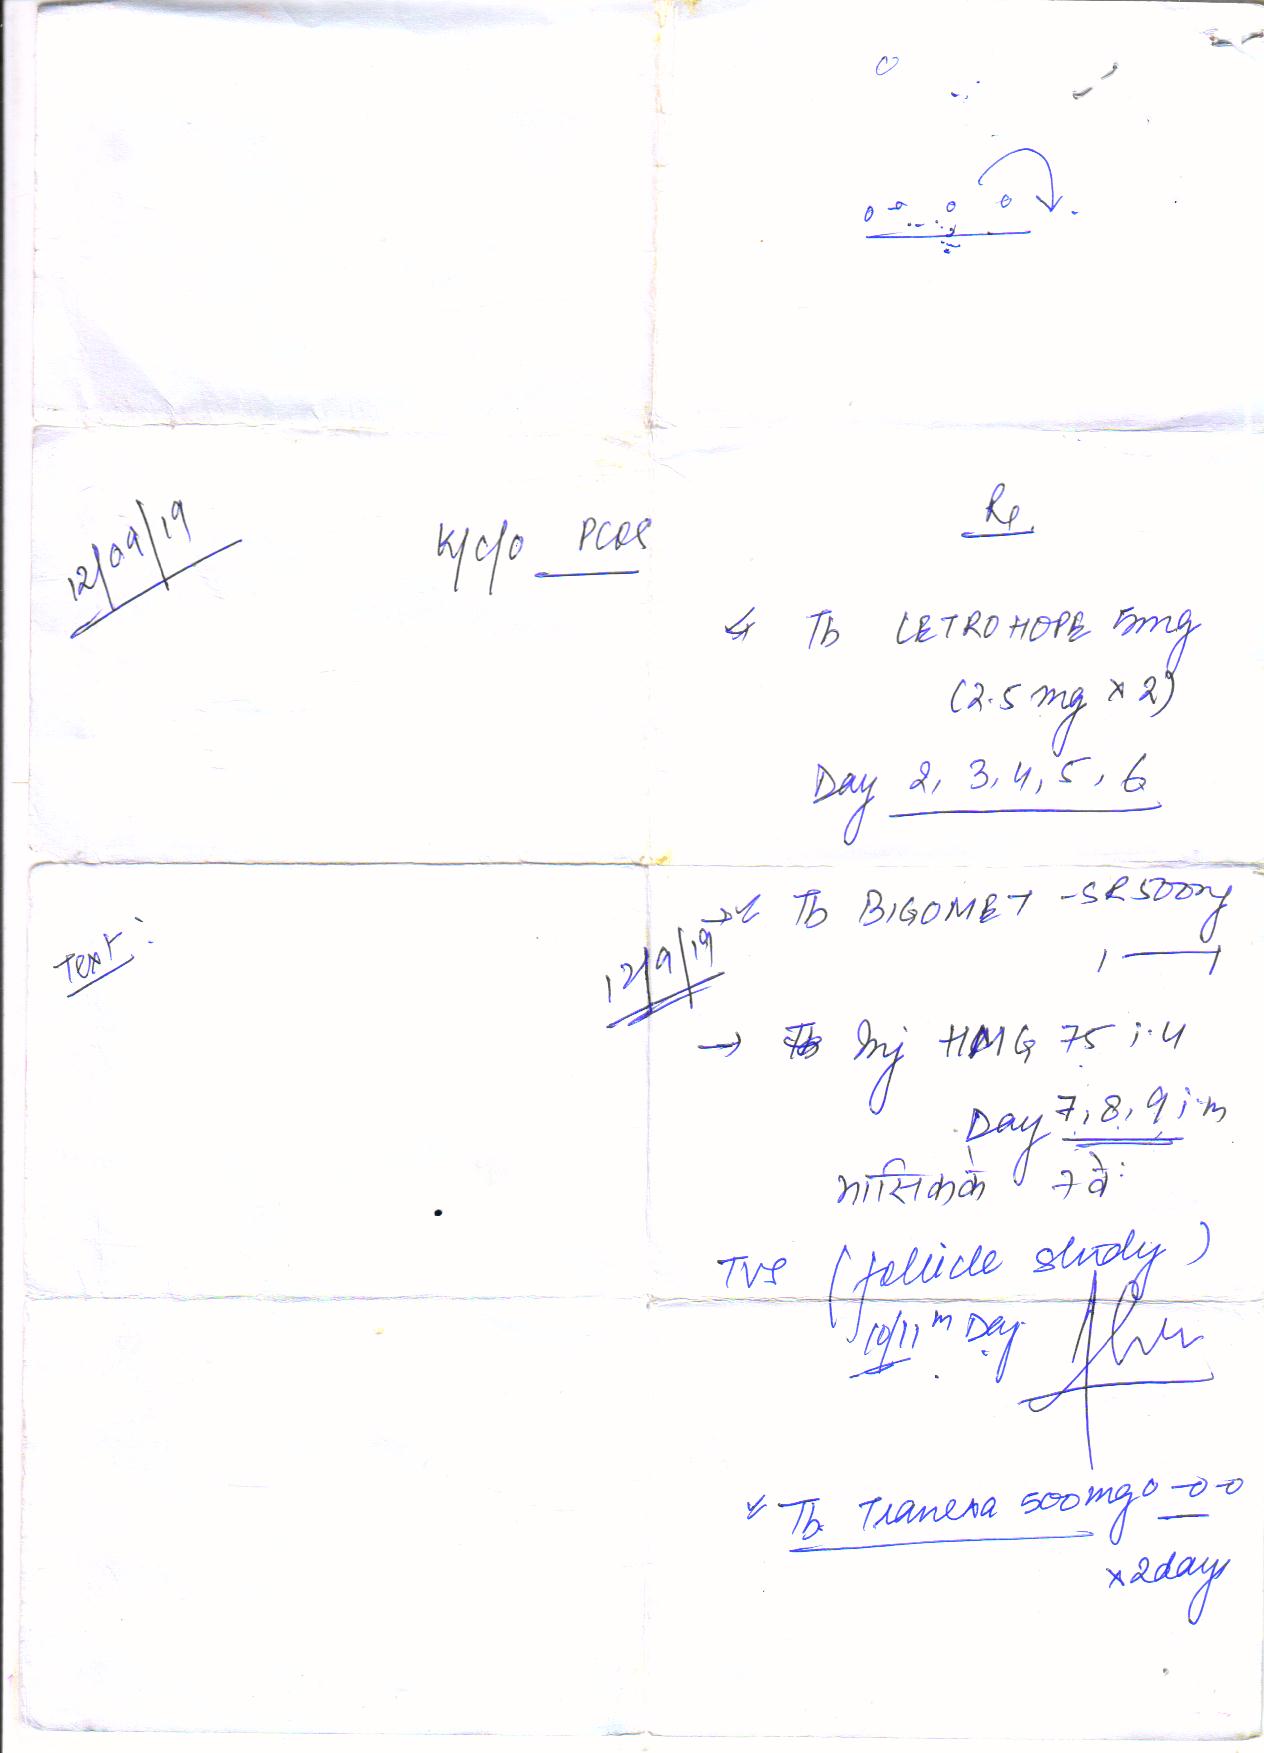 12/09/19
K/C/O PCOS
Rx
Tb LETROHOPE 5mg
(2.5 mg x 2)
Day 2, 3, 4, 5, 6
→ Tb BIGOMET -SR 500mg
1 —— 1
12/9/19
Text:
→ Inj HMG 75 i.u
Day 7, 8, 9 i.m
मासिक के
TVS (follicle study)
10/11 m Day
Tb. Tranexa 500mg 0-0-0
x 2 days